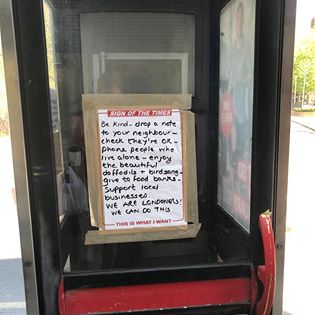 SIGN OF THE TIMES
Be kind - drop a note
to your neighbour -
check they're OK -
phone people who
live alone - enjoy
the beautiful
daffodils + birdsong -
give to food banks -
support local
businesses.
WE ARE LONDONERS!
WE CAN DO THIS
THIS IS WHAT I WANT